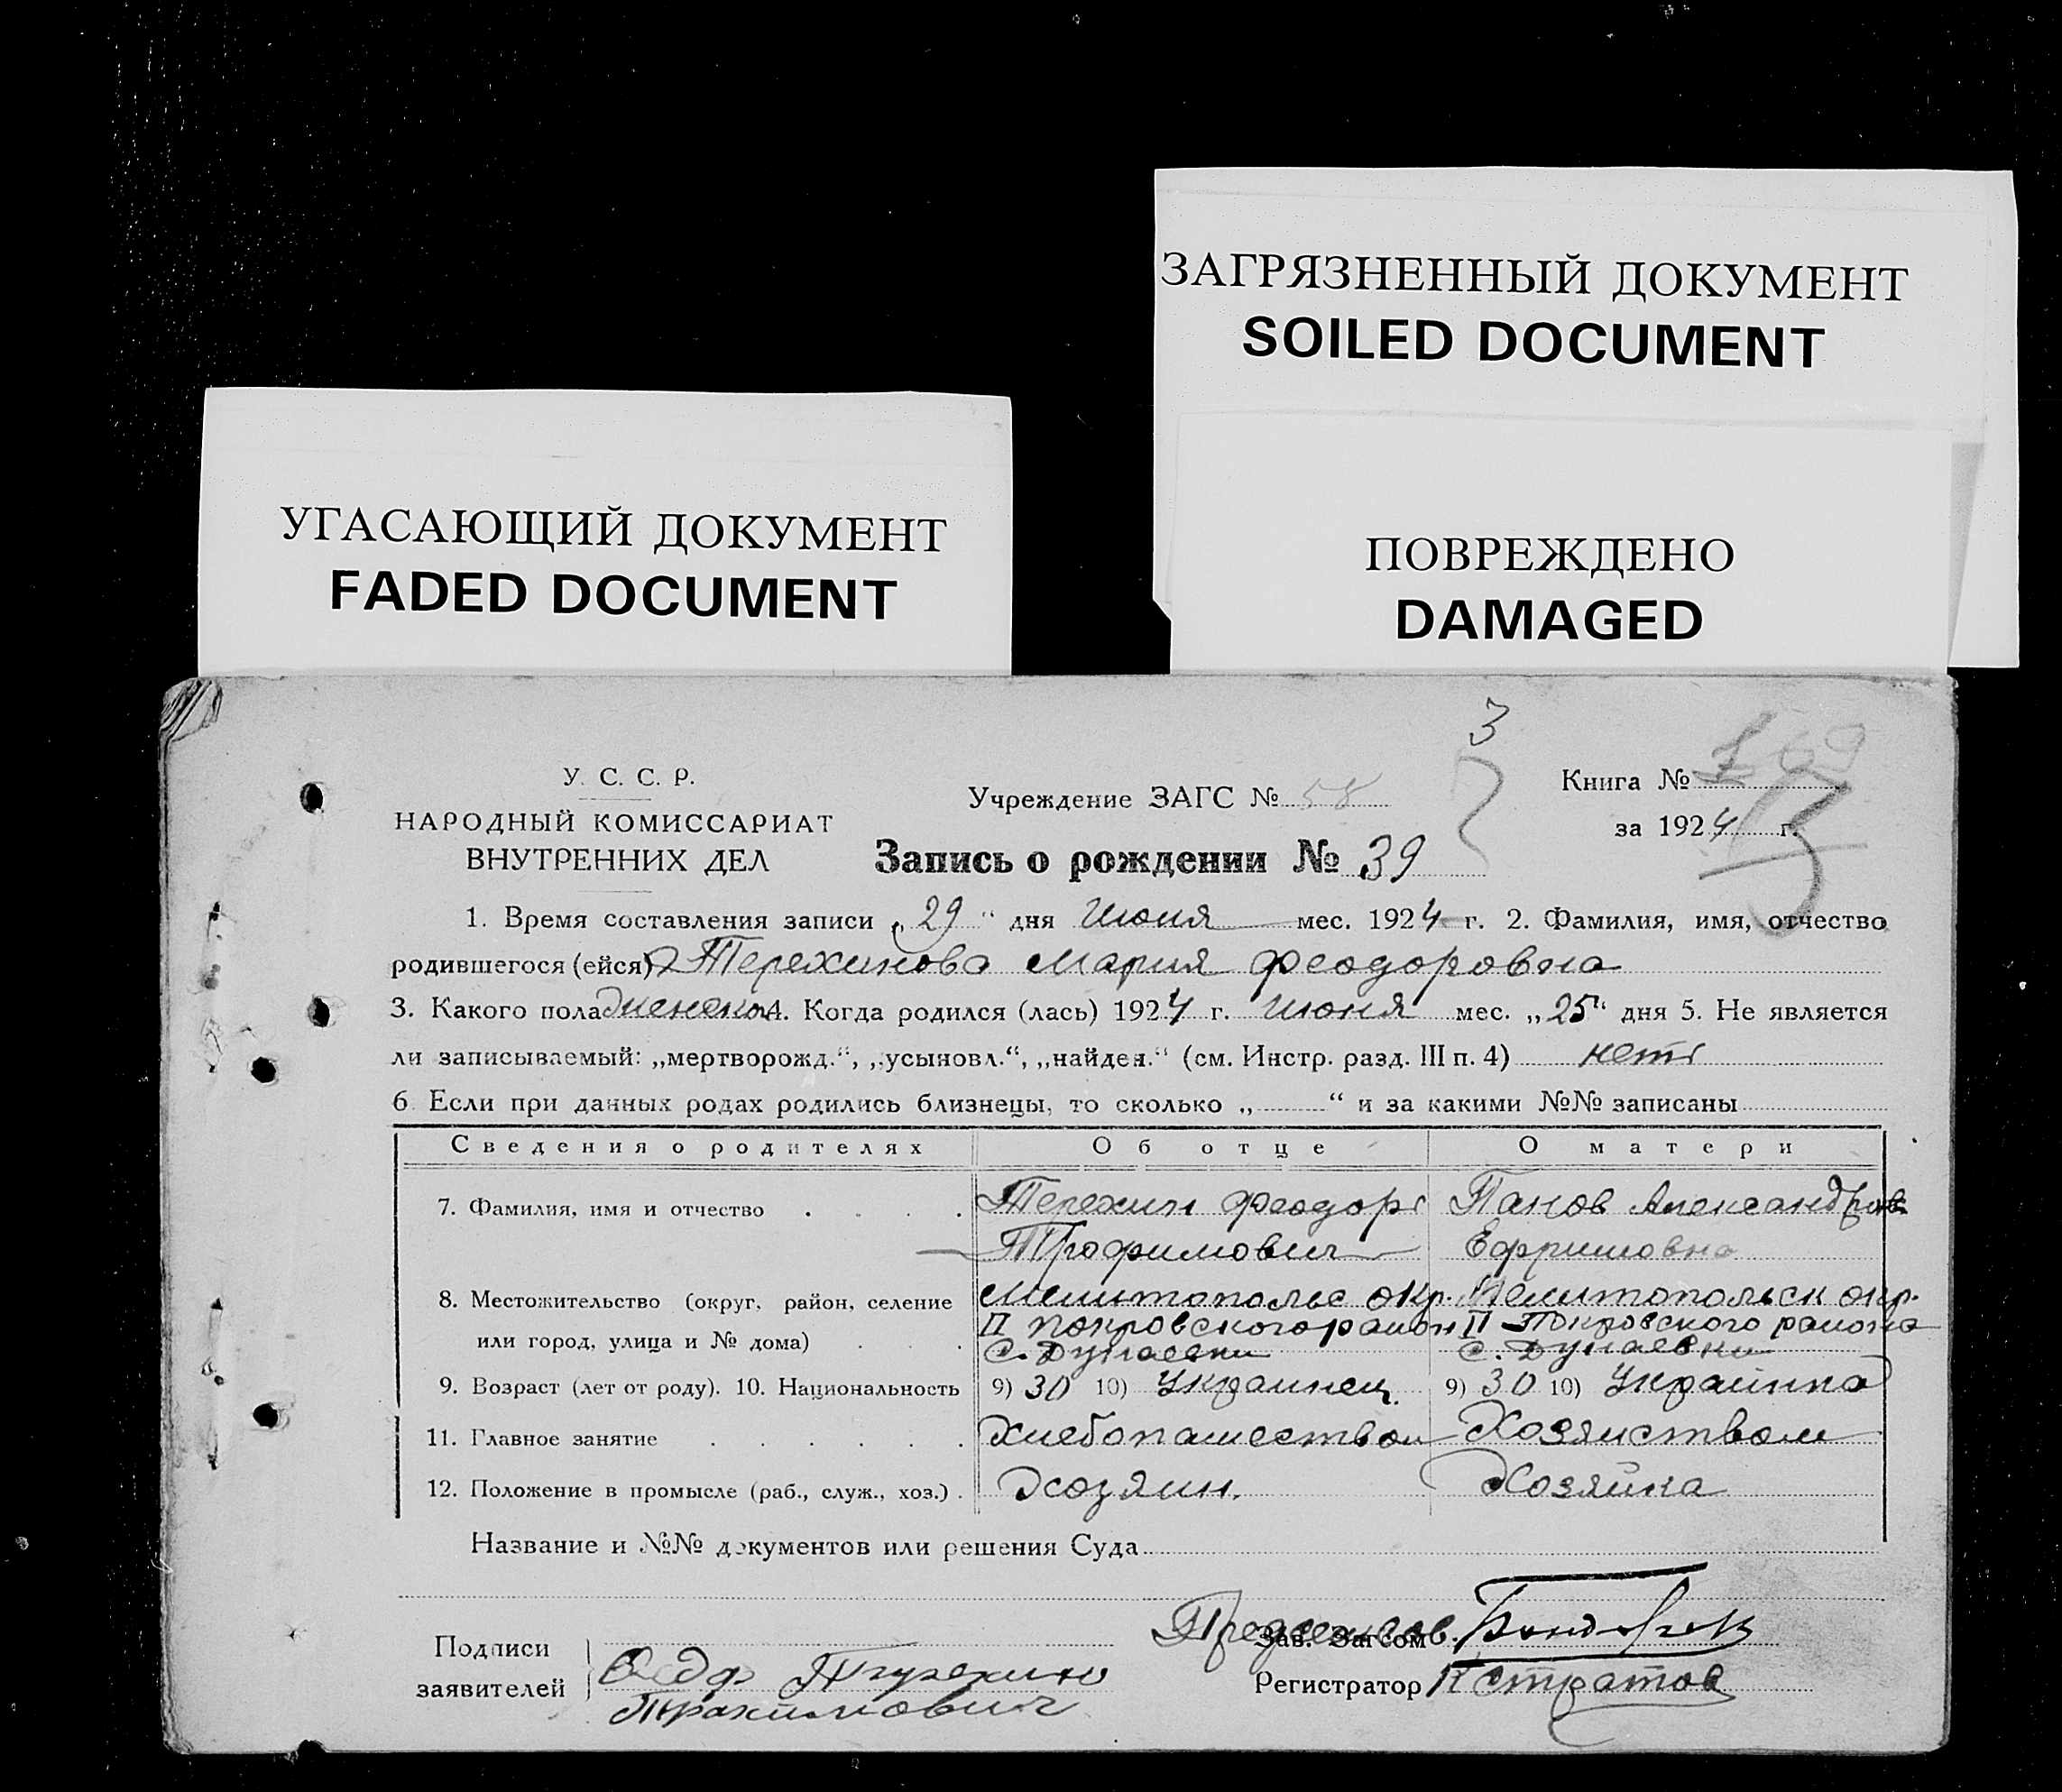 ЗАГРЯЗНЕННЫЙ ДОКУМЕНТ
SOILED DOCUMENT
УГАСАЮЩИЙ ДОКУМЕНТ
FADED DOCUMENT
ПОВРЕЖДЕНО
DAMAGED
3
У. С. С. Р.
НАРОДНЫЙ КОМИССАРИАТ
ВНУТРЕННИХ ДЕЛ
Учреждение ЗАГС № 58
Книга №
за 1924 г.
Запись о рождении № 39
1. Время составления записи „29“ дня Июня мес. 1924 г. 2. Фамилия, имя, отчество
родившегося (ейся) Терехинова Мария Феодоровна
3. Какого пола женско 4. Когда родился (лась) 1924 г. Июня мес. „25“ дня 5. Не является
ли записываемый: „мертворожд.“, „усыновл.“, „найден.“ (см. Инстр. разд. III п. 4) нет
6 Если при данных родах родились близнецы, то сколько „ “ и за какими №№ записаны
Сведения о родителях Об отце О матери
7. Фамилия, имя и отчество Терехин Феодор Панов Александра
Трофимович Ефримовна
8. Местожительство (округ, район, селение Мелитопольс окр. Мелитопольск окр.
или город, улица и № дома) II Покровского район II Покровского района
с. Дунаевки с. Дунаевки
9. Возраст (лет от роду). 10. Национальность 9) 30 10) Украинец. 9) 30 10) Украинка
11. Главное занятие Хлебопашеством Хозяйством
12. Положение в промысле (раб., служ., хоз.) Хозяин. Хозяйка
Название и №№ документов или решения Суда
Подписи
заявителей
Трахимович
Зав. Загсом
Регистратор